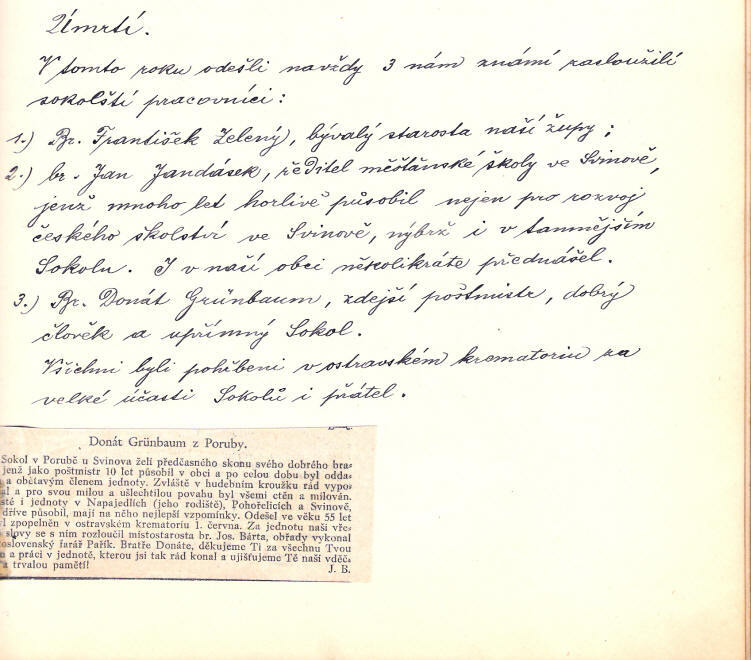 Úmrtí.
V tomto roku odešli navždy 3 nám známí zasloužilí
sokolští pracovníci:
1.) Br. František Zelený, bývalý starosta naší župy;
2.) br. Jan Jandásek, ředitel měšťanské školy ve Svinově,
jenž mnoho let horlivě působil nejen pro rozvoj
českého školství ve Svinově, nýbrž i v tamnějším
Sokolu. I v naší obci několikráte přednášel.
3.) Br. Donát Grünbaum, zdejší poštmistr, dobrý
člověk a upřímný Sokol.
Všichni byli pohřbeni v ostravském krematoriu za
velké účasti Sokolů i přátel.
Donát Grünbaum z Poruby.
Sokol v Porubě u Svinova želí předčasného skonu svého dobrého bra-
jenž jako poštmistr 10 let působil v obci a po celou dobu byl odda-
a obětavým členem jednoty. Zvláště v hudebním kroužku rád vypo-
al a pro svou milou a ušlechtilou povahu byl všemi ctěn a milován.
sté i jednoty v Napajedlích (jeho rodiště), Pohořelicích a Svinově,
dříve působil, mají na něho nejlepší vzpomínky. Odešel ve věku 55 let
yl zpopelněn v ostravském krematoriu 1. června. Za jednotu naši vře-
slovy se s ním rozloučil místostarosta br. Jos. Bárta, obřady vykonal
oslovenský farář Pařík. Bratře Donáte, děkujeme Ti za všechnu Tvou
u a práci v jednotě, kterou jsi tak rád konal a ujišťujeme Tě naší vděč-
a trvalou pamětí!
J. B.